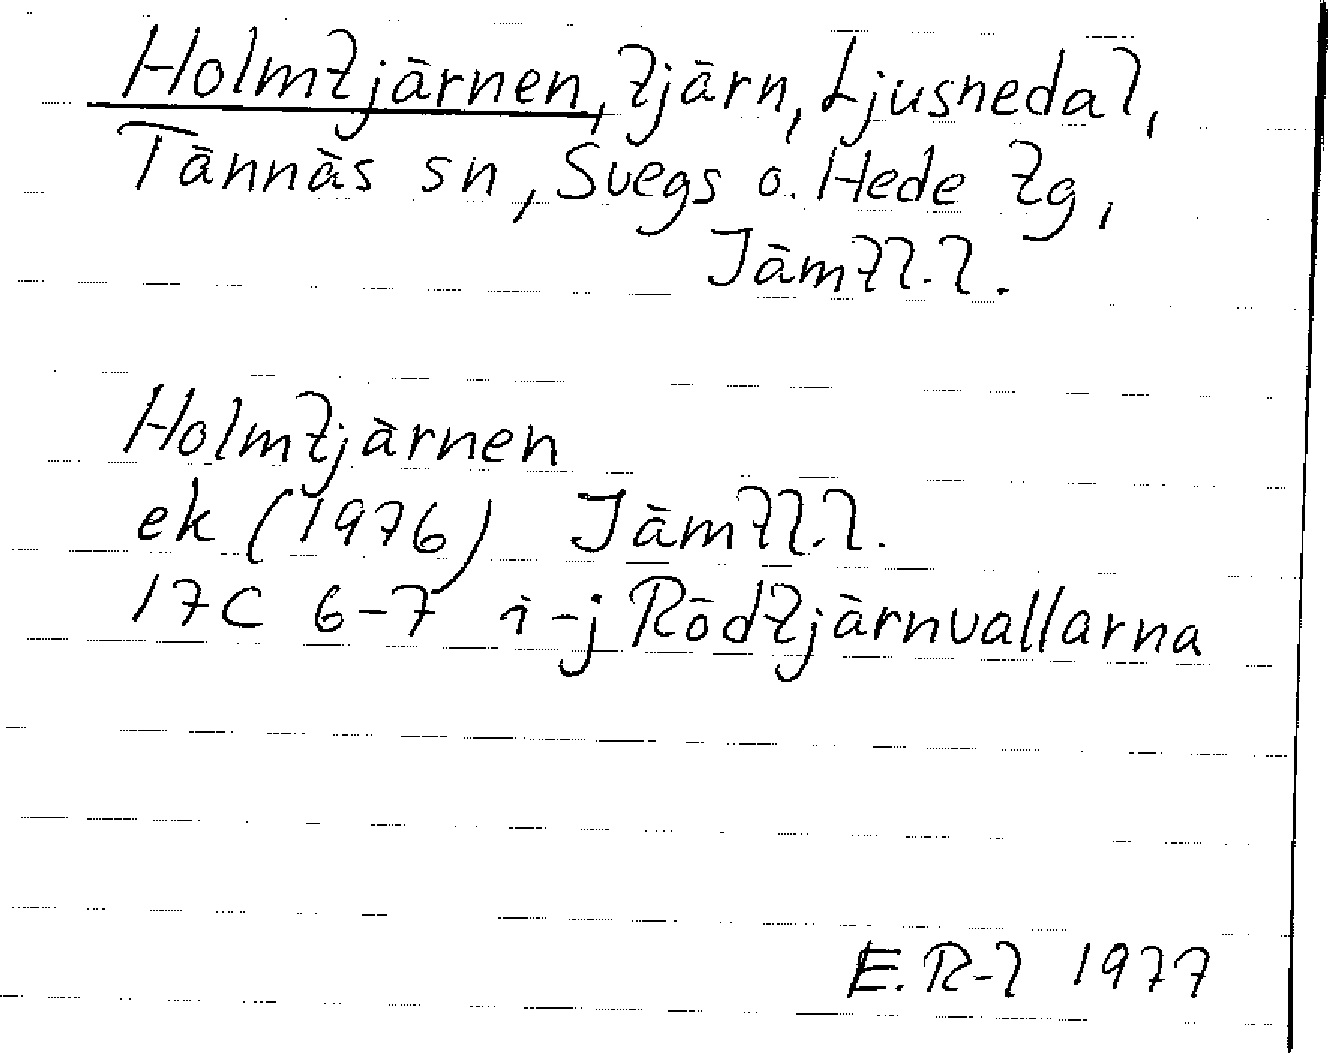 Holmtjärnen, tjärn, Ljusnedal,
Tännäs sn, Svegs o. Hede tg,
Jämtl.l.
Holmtjärnen
ek (1976) Jämtl.l.
17C 6-7 i-j Rödtjärnvallarna
E.R-l 1977